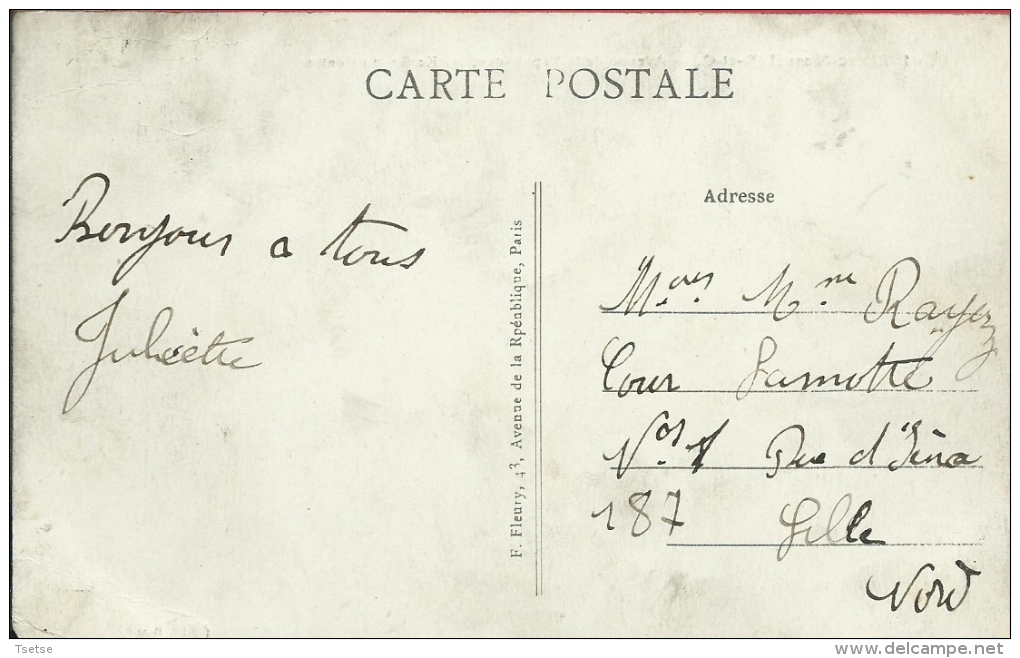 CARTE POSTALE
Bonjour a tous
Juliette
F. Fleury, 43, Avenue de la Rpénblique, Paris
Adresse
M.our M.me Rayez
Cour Lamotte
N.os 1 Rue d'Iéna
187 Lille
Nord
Tsetse
delcampe.net